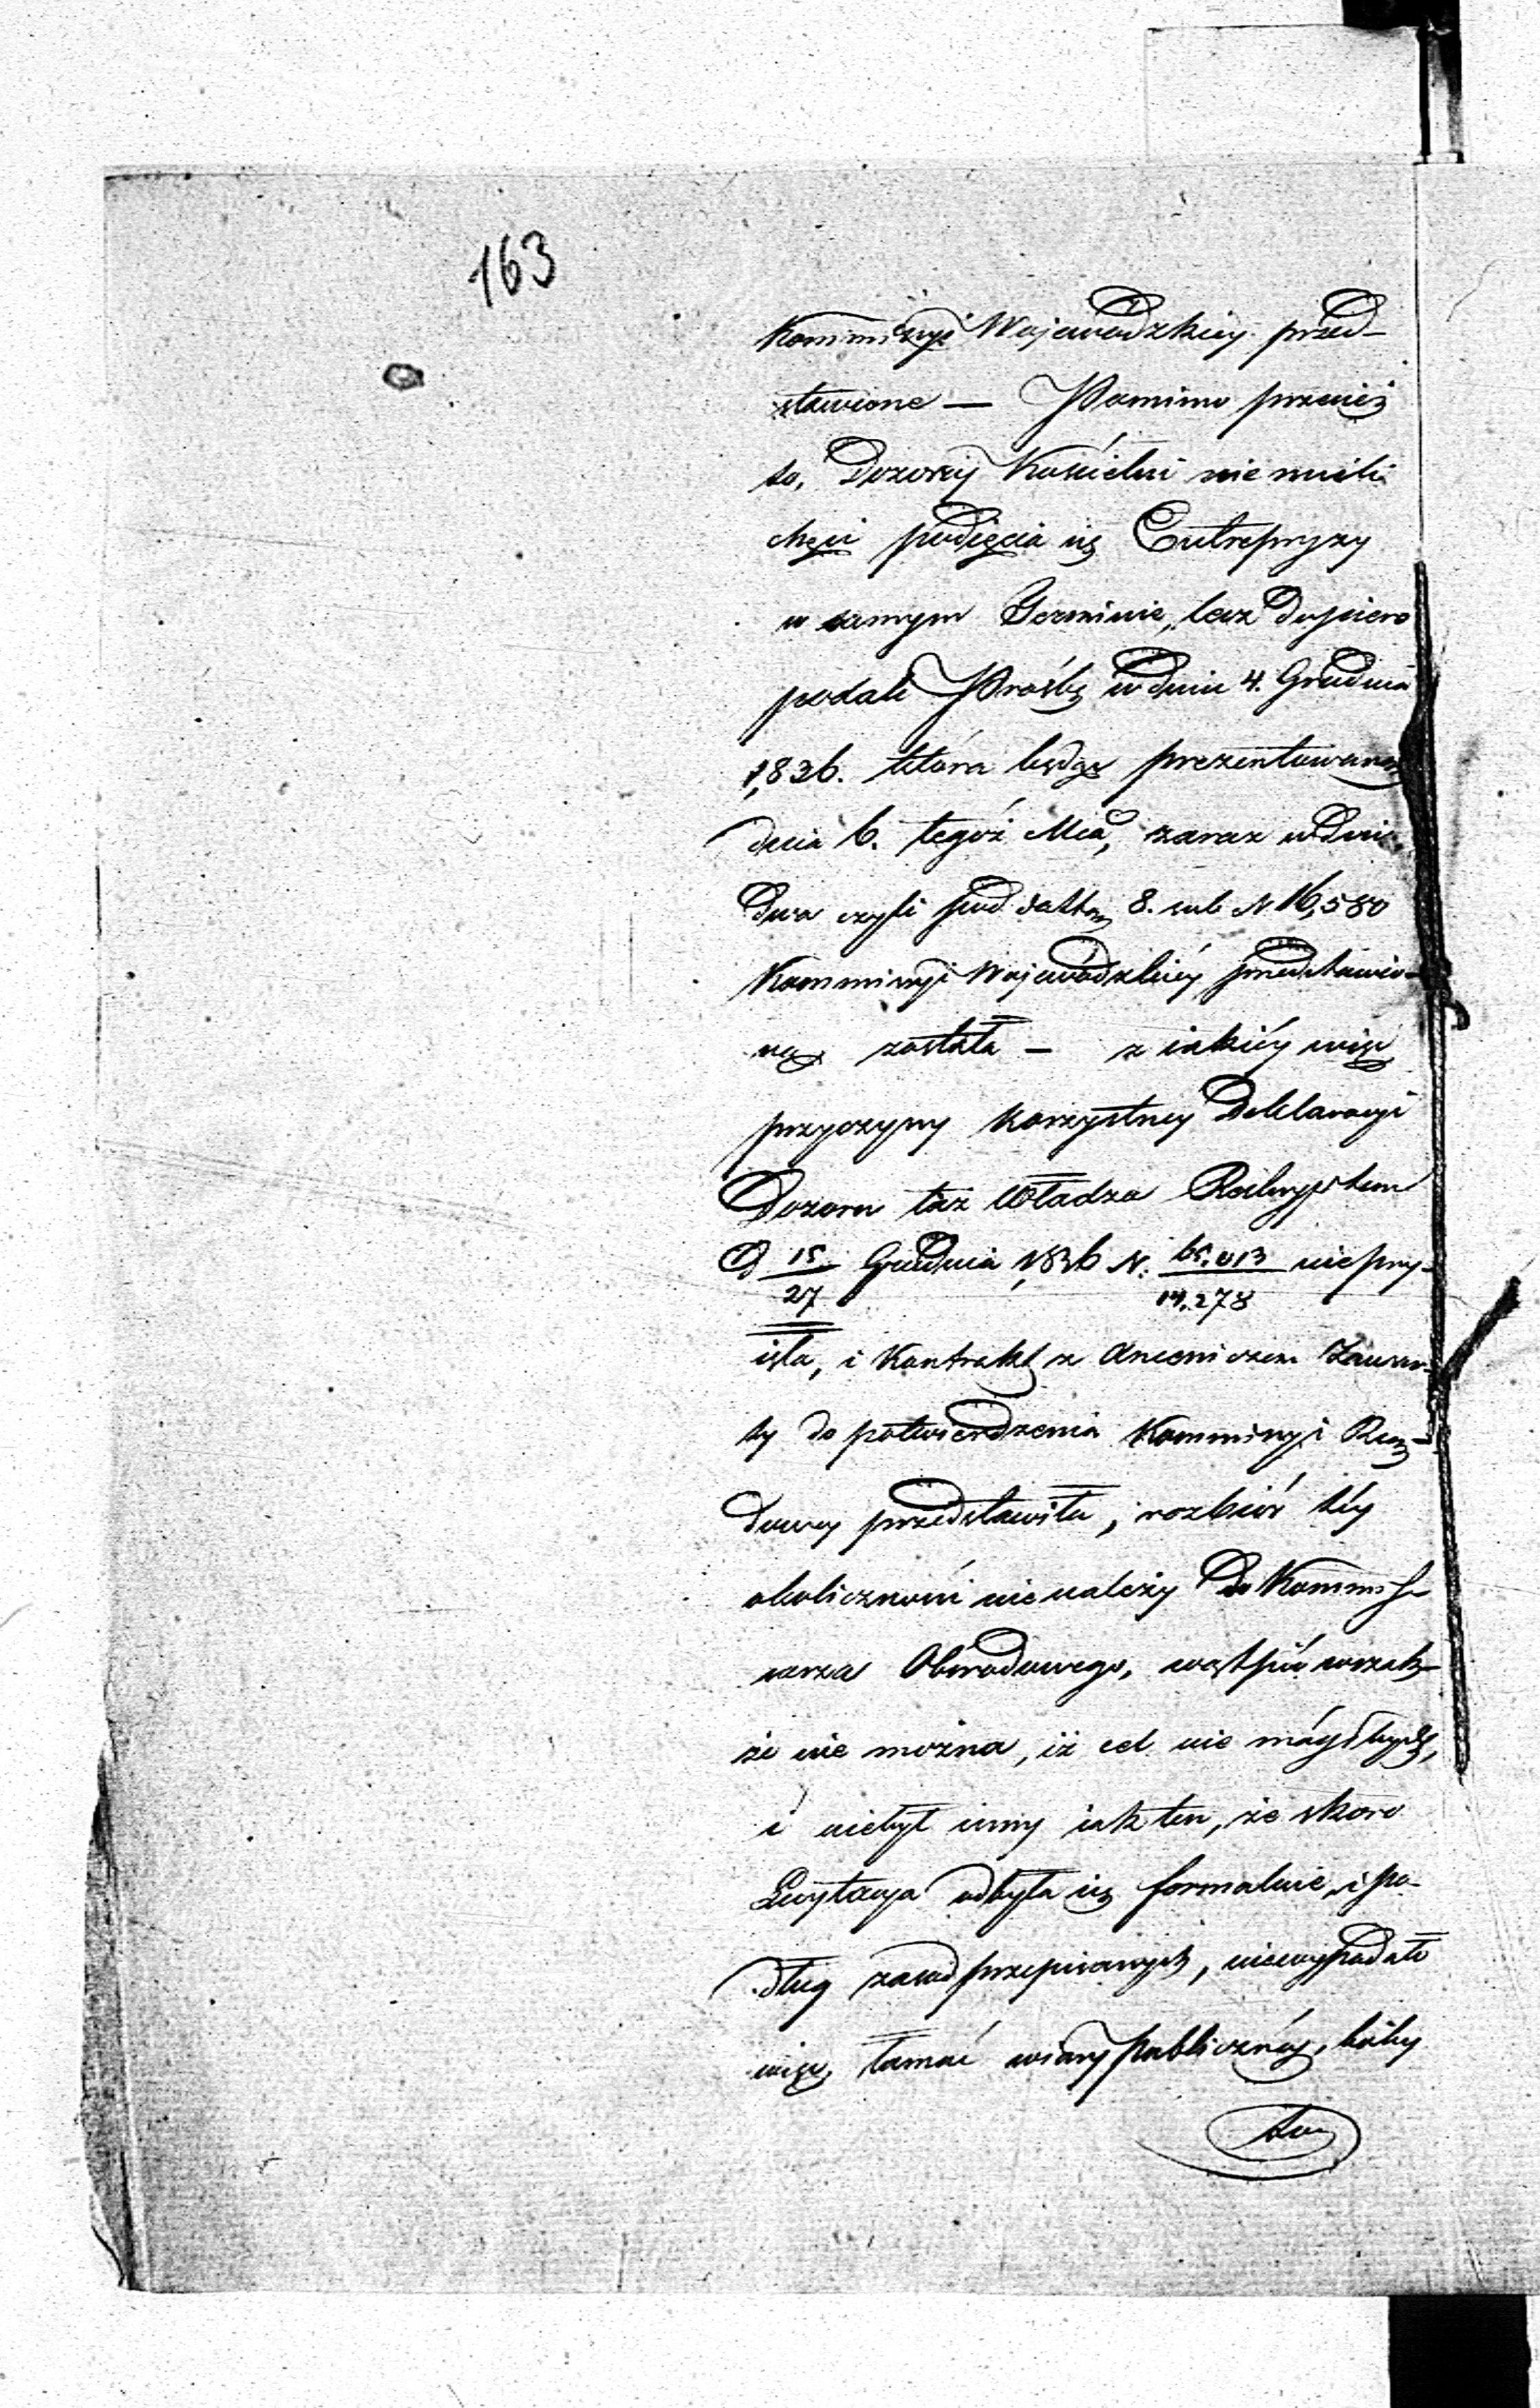 163
Kommissyi Wojewódzkiey przed-
stawione — Pomimo przecież
to, Dozorcy Kościelni nie mieli
chęci podięcia się Entrepryzy
w samym Terminie, lecz dopiero
podali Prośbę w dniu 4. Grudnia
1,836. która będąc prezentowaną
dnia 6. tegoż Mca, zaraz w dni
dwa czyli pod dattą 8. sub N 16,580
Kommissyi Wojewódzkiéy przedstawio-
ną została — z iakiéy więc
przyczyny korzystney Deklaracyi
Dozoru taż Władza Reskryptem
D 15/27 Grudnia 1,836 N. 65.013/14.278 nieprzy-
ięła, i Kontrakt z Zawar-
ty do potwierdzenia Kommissyi Rzą-
dowey przedstawiła, rozbiór téy
okoliczności nie należy do Kommis-
sarza Obwodowego, wątpić wszak-
że nie można, iż cel nie mógł bydź,
i niebył inny iak ten, że skoro
Licytacya odbyła się formalnie, i po-
dług zasad przepisanych, niewypadało
więc łamać wiary publicznéy, boby